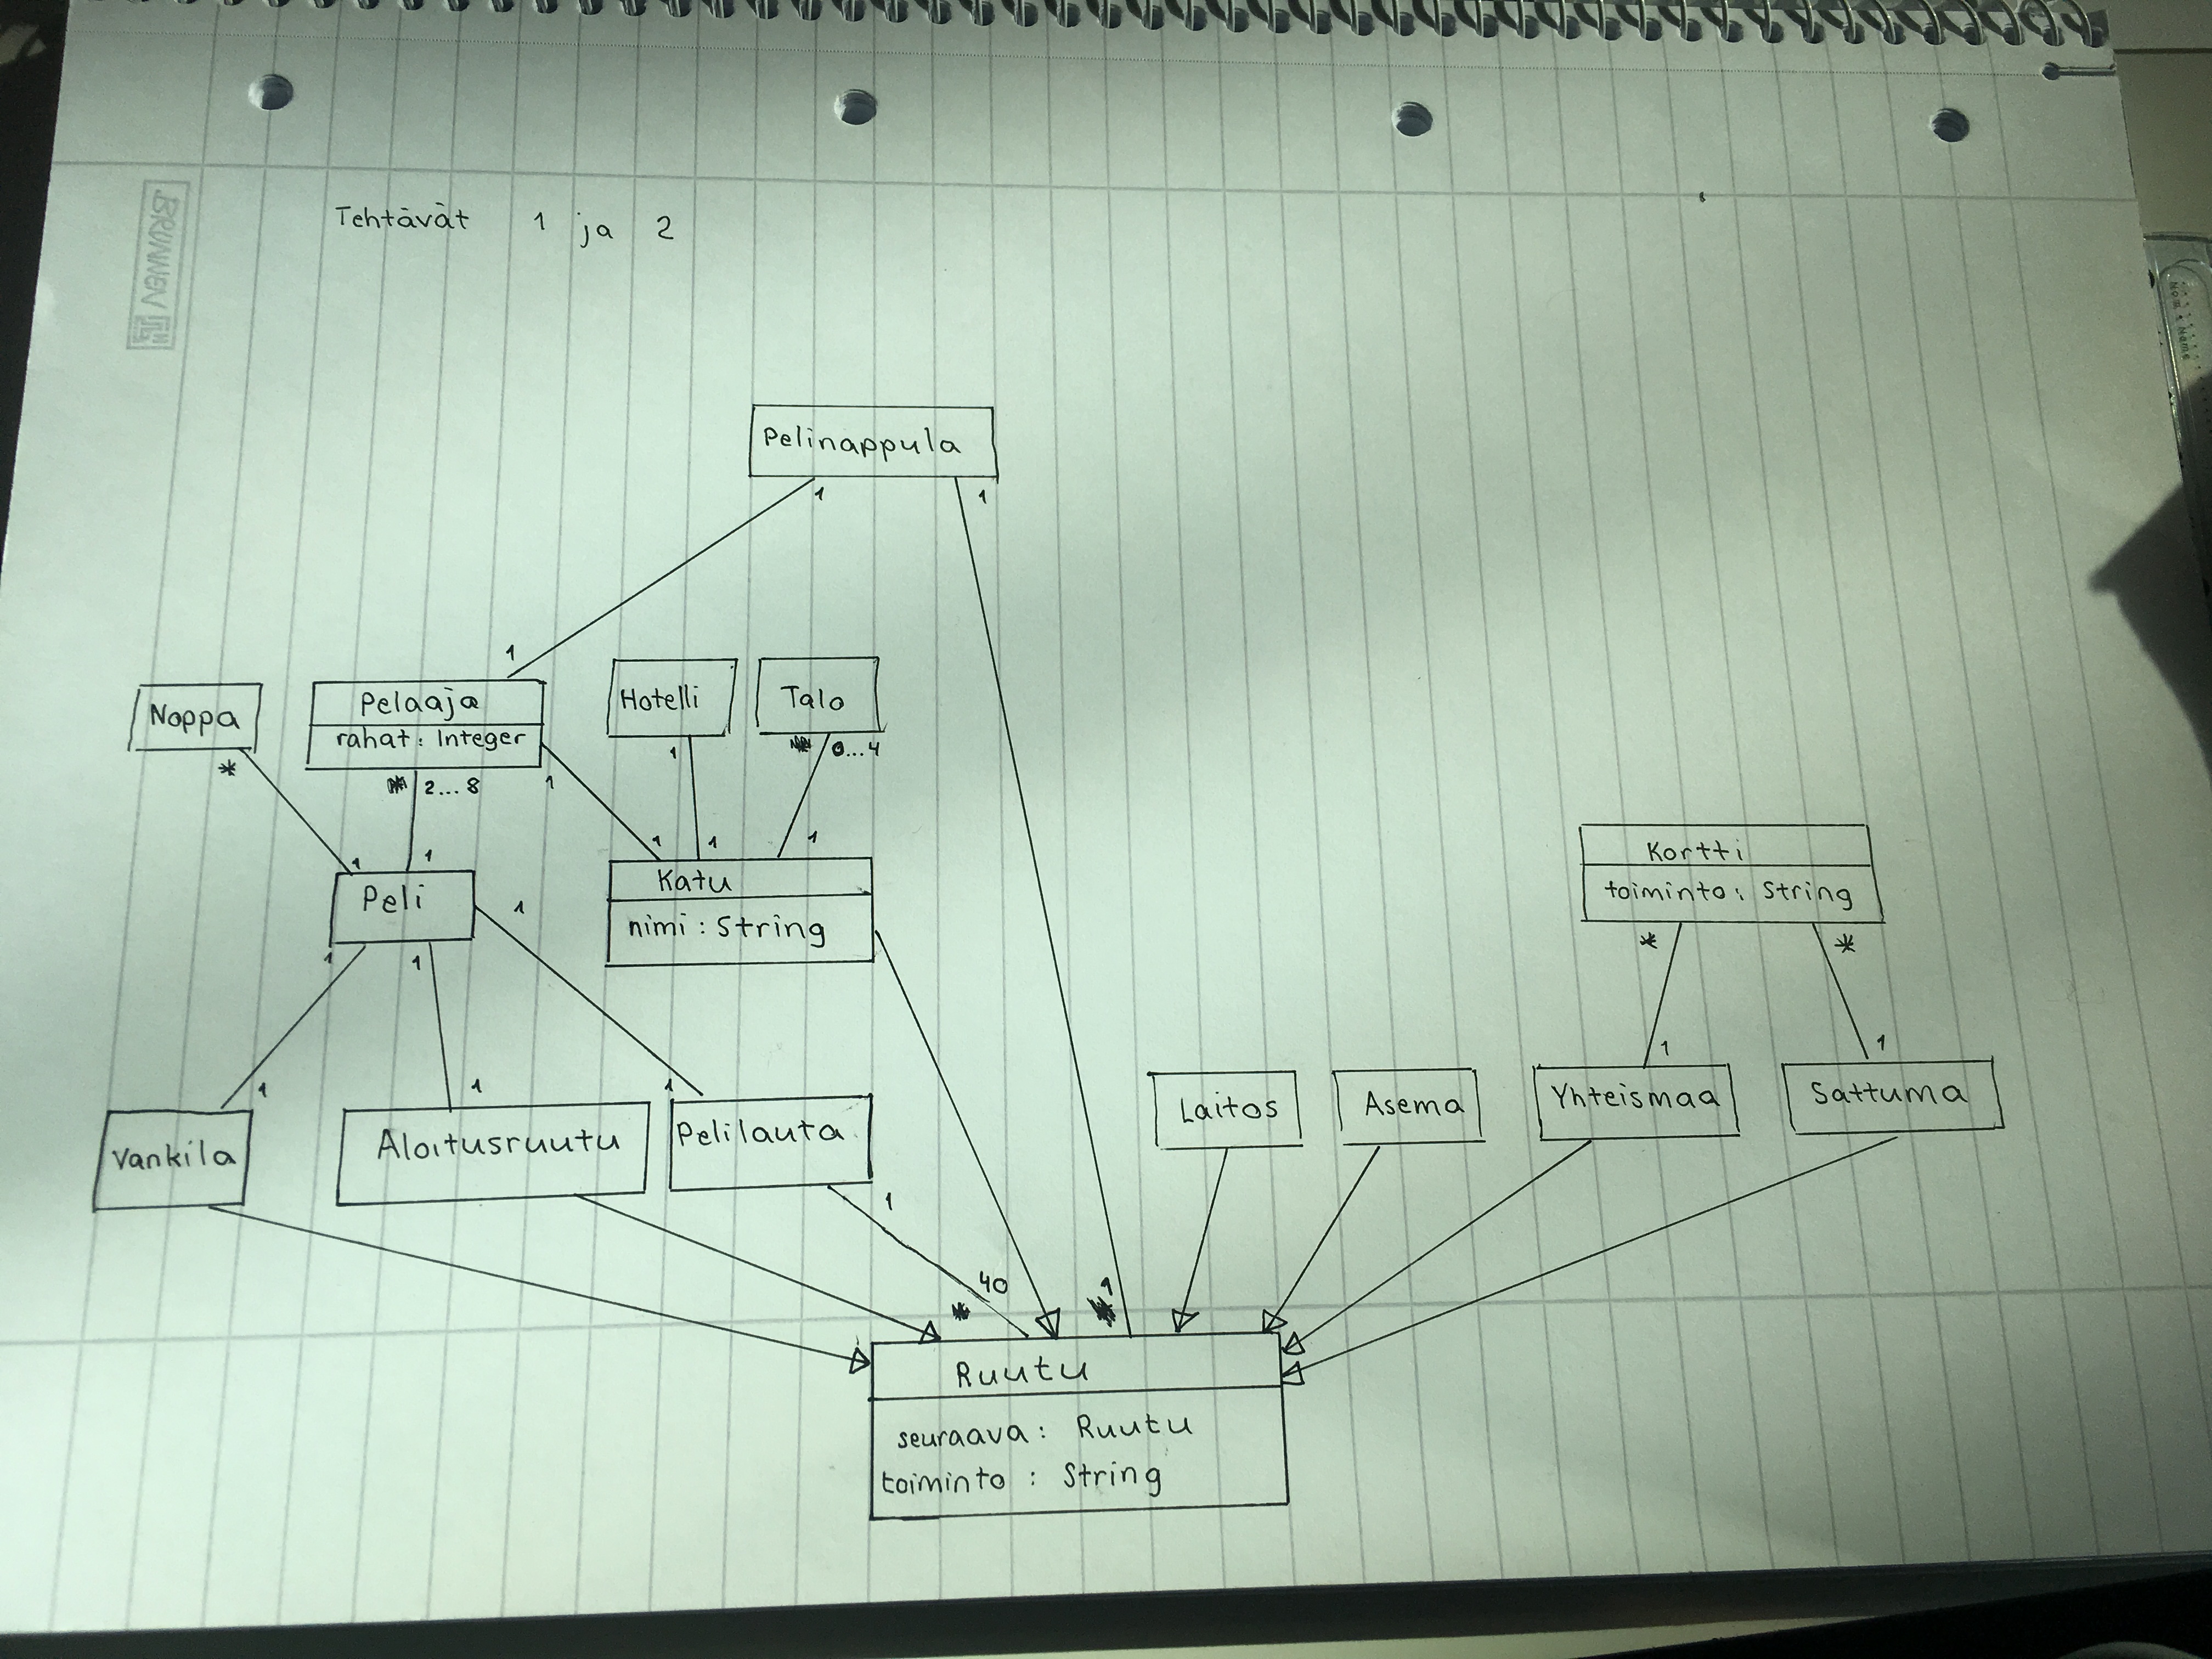 BRUNNEN
Tehtävät 1 ja 2
Pelinappula
1 1
1
Noppa
Pelaaja
rahat: Integer
Hotelli
Talo
*
2...8
1
1
0...4
1
1
1
1
1
Peli
1
Katu
nimi: String
Kortti
toiminto: String
1
1
*
*
1
1
1
1
1
Vankila
Aloitusruutu
Pelilauta
Laitos
Asema
Yhteismaa
Sattuma
1
40
1
Ruutu
seuraava: Ruutu
toiminto: String